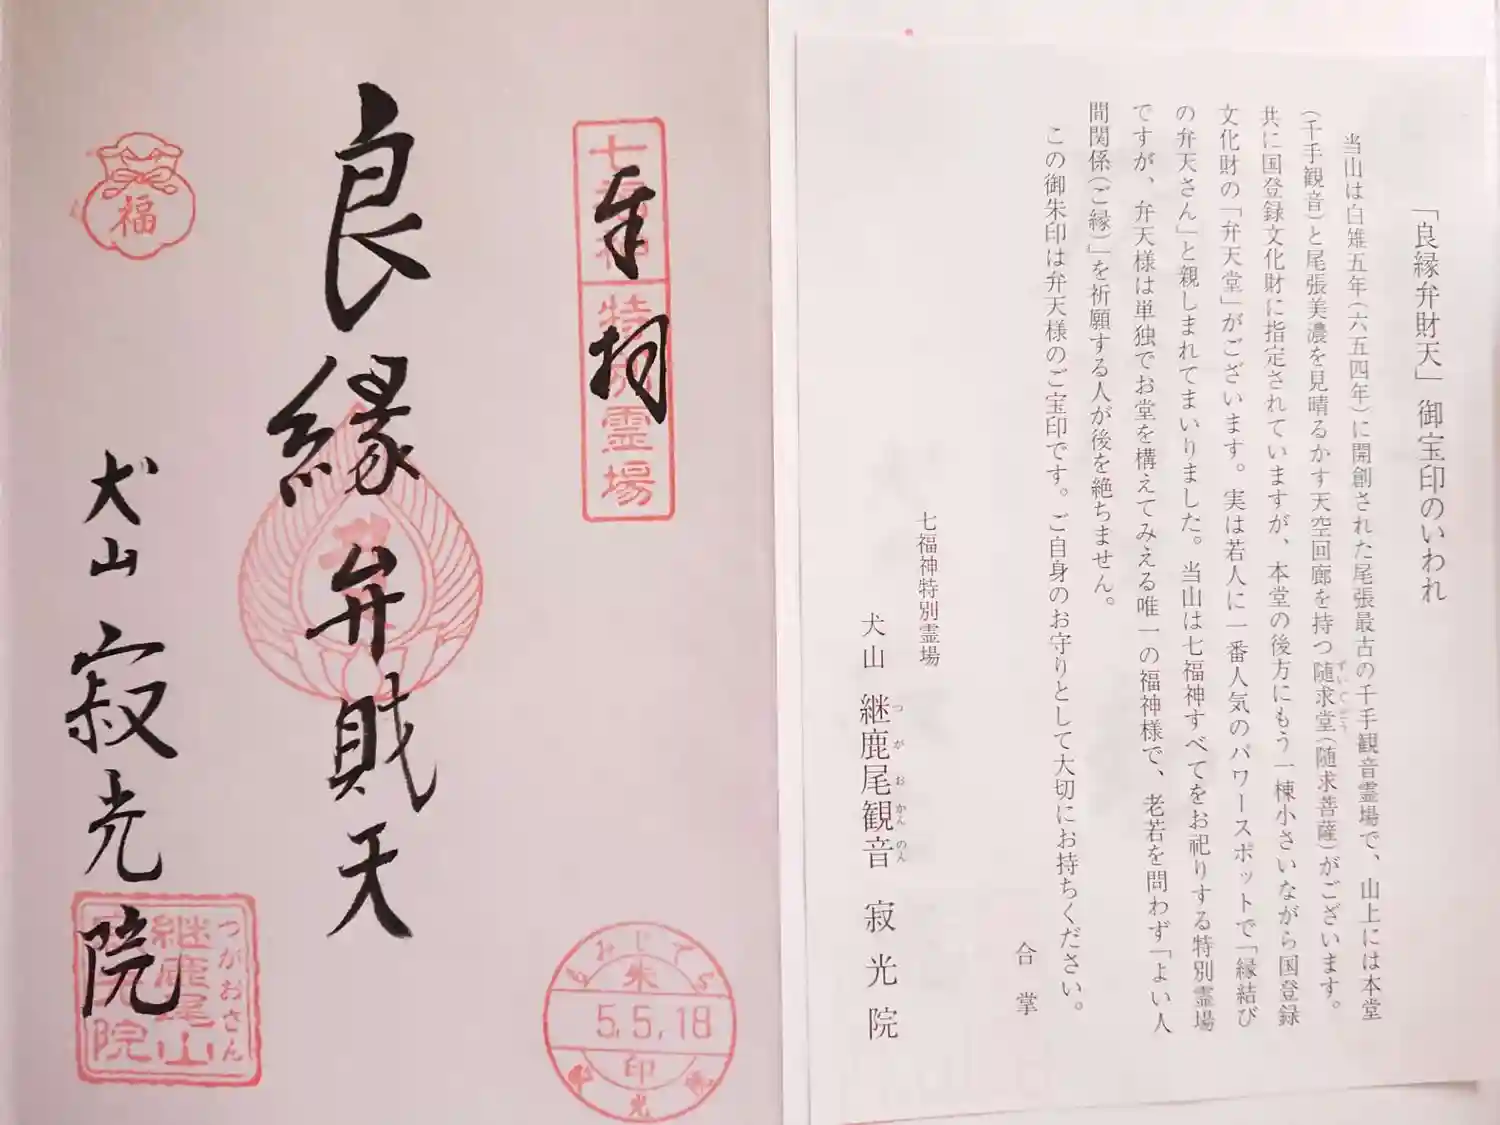 奉拝
七福神特別霊場
良縁弁財天
福
犬山 寂光院
つがおさん
継鹿尾山
寂光院
もみじでら
朱
5.5.18
印
「良縁弁財天」御宝印のいわれ
当山は白雉五年(六五四年)に開創された尾張最古の千手観音霊場で、山上には本堂
(千手観音)と尾張美濃を見晴るかす天空回廊を持つ随求堂(随求菩薩)がございます。
共に国登録文化財に指定されていますが、本堂の後方にもう一棟小さいながら国登録
文化財の「弁天堂」がございます。実は若人に一番人気のパワースポットで「縁結び
の弁天さん」と親しまれてまいりました。当山は七福神すべてをお祀りする特別霊場
ですが、弁天様は単独でお堂を構えてみえる唯一の福神様で、老若を問わず「よい人
間関係(ご縁)」を祈願する人が後を絶ちません。
この御朱印は弁天様のご宝印です。ご自身のお守りとして大切にお持ちください。
合掌
七福神特別霊場
犬山 継鹿尾観音 寂光院
つがおかんのん